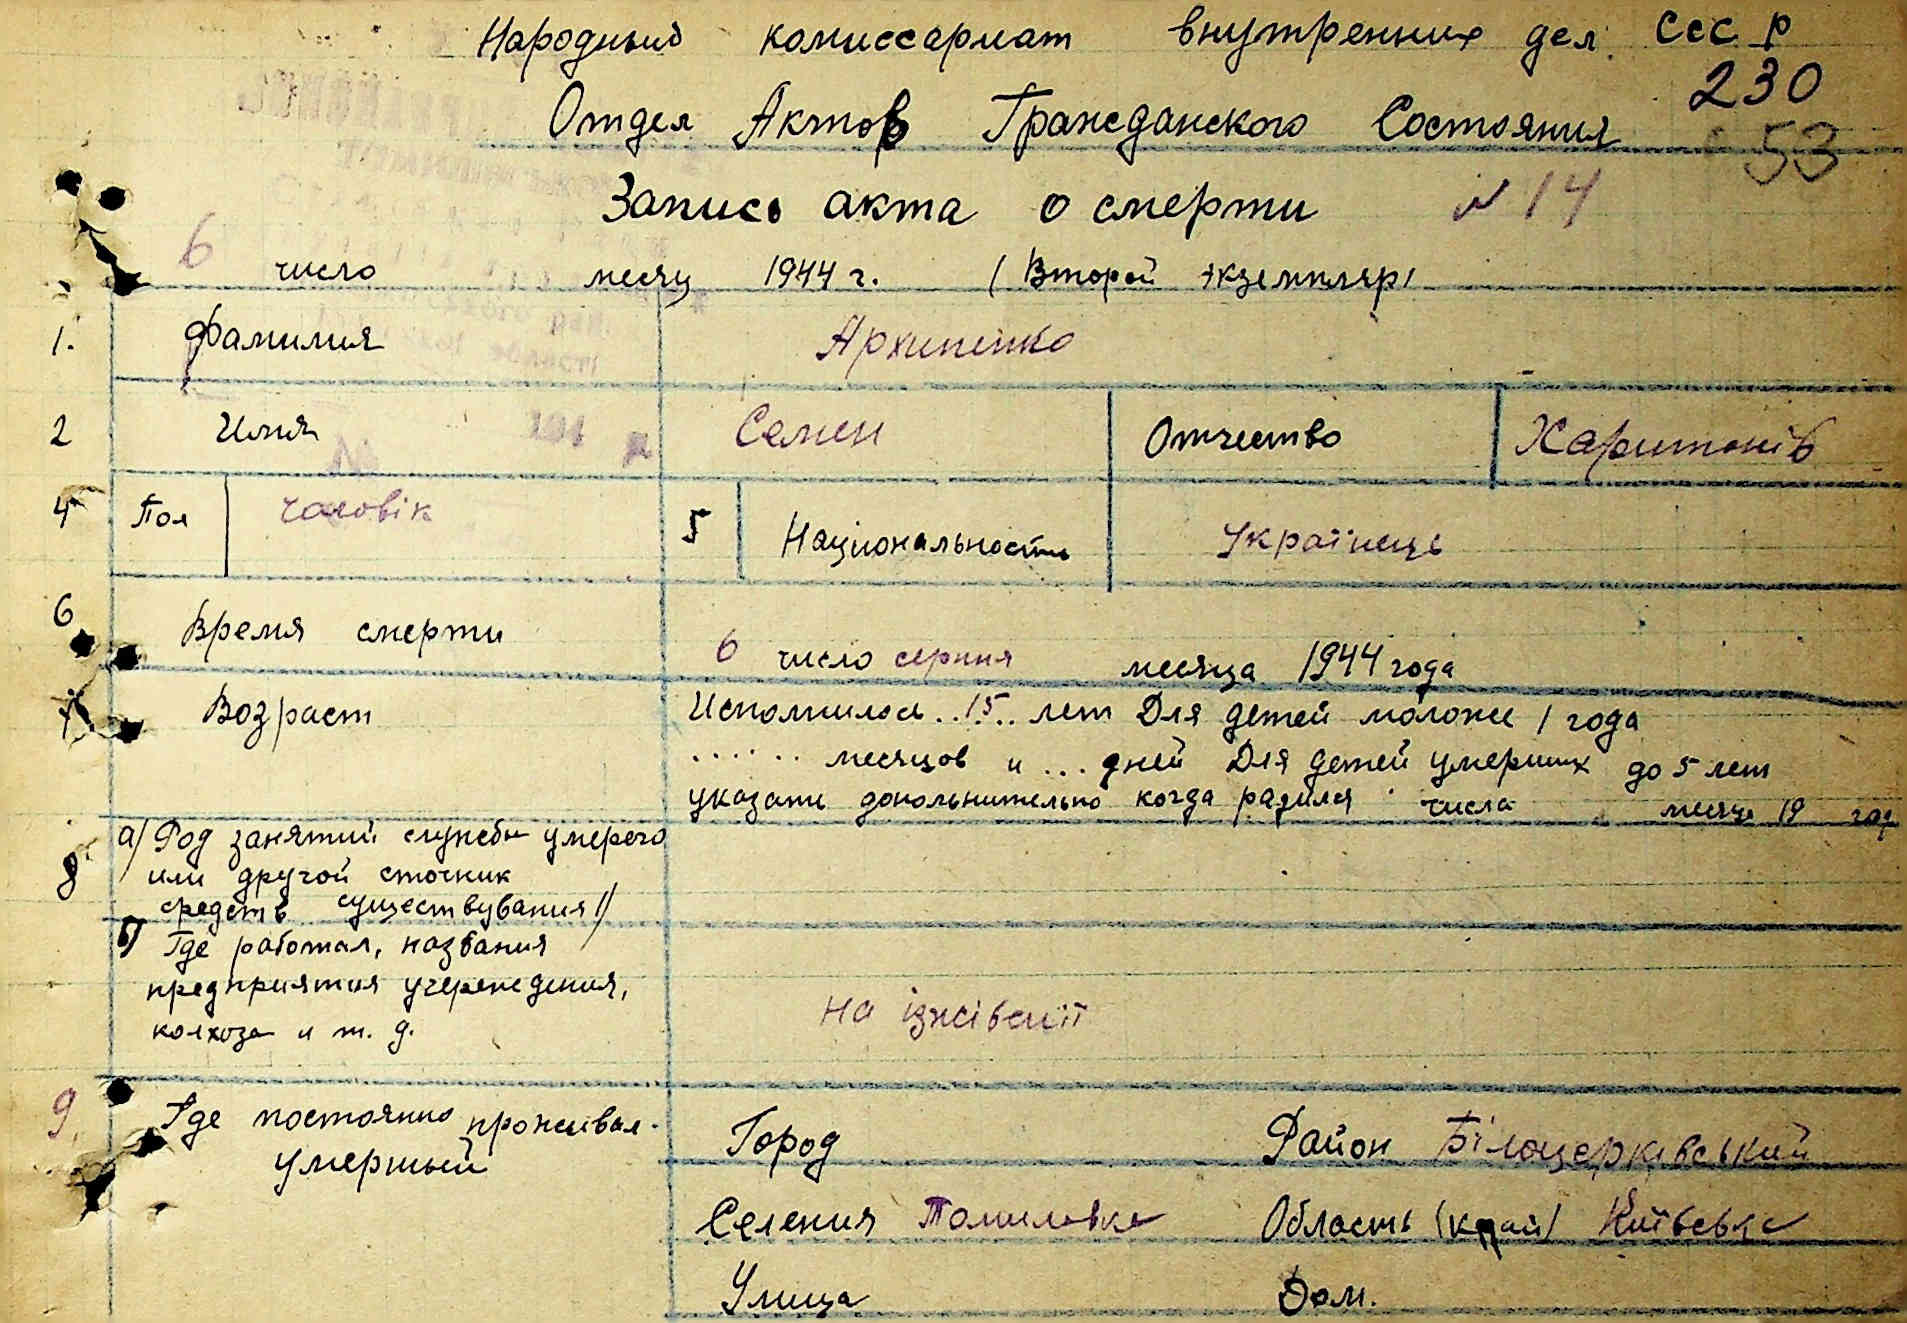 Народный комиссариат внутренних дел СССР
230
Отдел Актов Гражданского Состояния
53
Запись акта о смерти № 14
6 число месяц 1944 г. (Второй экземпляр)
1. Фамилия Архипенко
2 Имя Семен Отчество Харитонів
4 Пол чоловік 5 Национальность Українець
6 Время смерти 6 число серпня месяца 1944 года
7 Возраст Исполнилось ..15.. лет Для детей моложе 1 года
...... месяцов и ... дней Для детей умерших до 5 лет
указать дополнительно когда радился числа месяц 19 год
8 а) Род занятий службы умерего
или другой сточник
средств существувания)
б) Где работал, названия
предприятия учереждения,
колхоза и т. д.
на іжівенії
9. Где постоянно проживал
умерший
Город Район Білоцерківський
Селения Томиловка Область (край) Київська
Улица Дом.